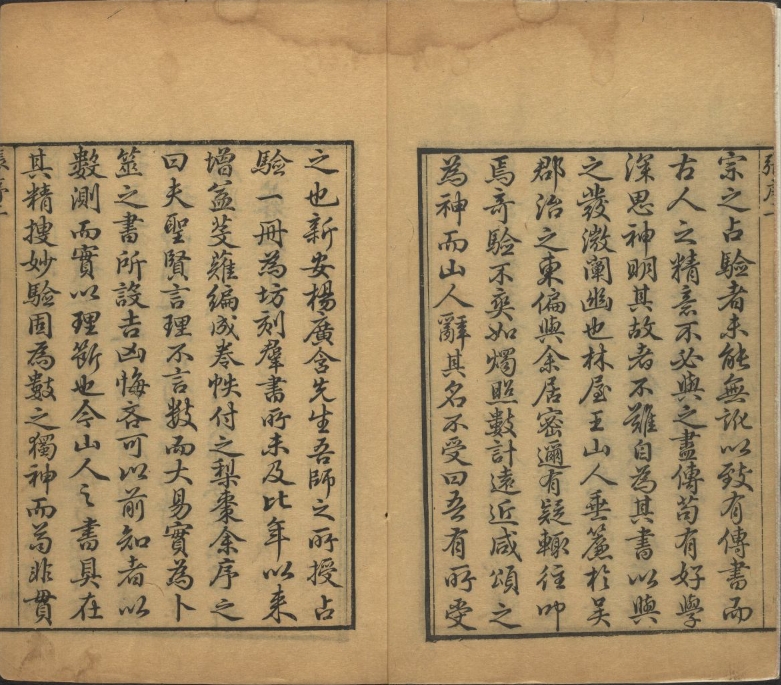 宗之占驗者未能無訛以致有傳書而
古人之精意不必與之盡傳苟有好學
深思神明其故者不難自為其書以與
之發微闡幽也林屋王山人垂簾於吳
郡治之東偏與余居密邇有疑輒往叩
焉奇驗不爽如燭照數計遠近咸頌之
為神而山人辭其名不受曰吾有所受
之也新安楊廣含先生吾師之所授占
驗一冊為坊刻羣書所未及比年以來
增益芟薙編成卷帙付之梨棗余序之
曰夫聖賢言理不言數而大易實為卜
筮之書所設吉凶悔吝可以前知者以
數測而實以理斷也今山人之書具在
其精搜妙驗固為數之獨神而苟非貫